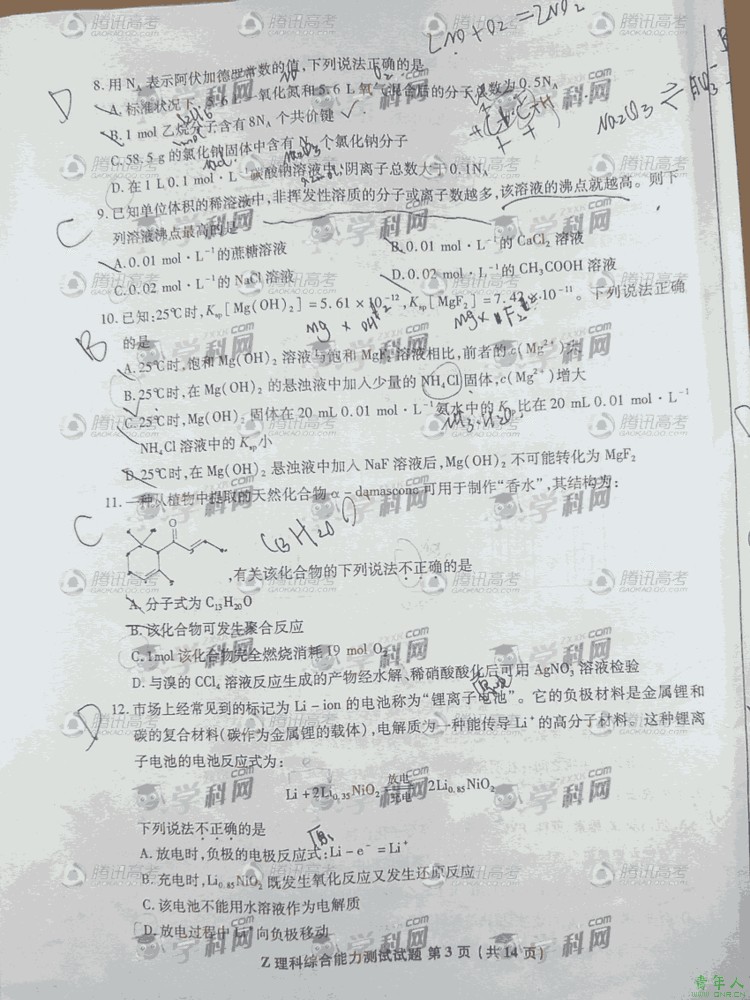 2NO + O2 = 2NO2
8. 用 N_A 表示阿伏加德罗常数的值,下列说法正确的是
D
A. 标准状况下,5.6 L 一氧化氮和 5.6 L 氧气混合后的分子总数为 0.5N_A
B. 1 mol 乙烷分子含有 8N_A 个共价键
C. 58.5 g 的氯化钠固体中含有 N_A 个氯化钠分子
D. 在 1 L 0.1 mol · L⁻¹ 碳酸钠溶液中,阴离子总数大于 0.1N_A
9. 已知单位体积的稀溶液中,非挥发性溶质的分子或离子数越多,该溶液的沸点就越高。则下
列溶液沸点最高的是
C
A. 0.01 mol · L⁻¹ 的蔗糖溶液
B. 0.01 mol · L⁻¹ 的 CaCl₂ 溶液
C. 0.02 mol · L⁻¹ 的 NaCl 溶液
D. 0.02 mol · L⁻¹ 的 CH₃COOH 溶液
10. 已知:25℃时,K_sp[Mg(OH)₂] = 5.61 × 10⁻¹²,K_sp[MgF₂] = 7.42 × 10⁻¹¹。下列说法正确
的是
B
A. 25℃时,饱和 Mg(OH)₂ 溶液与饱和 MgF₂ 溶液相比,前者的 c(Mg²⁺)大
B. 25℃时,在 Mg(OH)₂ 的悬浊液中加入少量的 NH₄Cl 固体,c(Mg²⁺)增大
C. 25℃时,Mg(OH)₂ 固体在 20 mL 0.01 mol · L⁻¹ 氨水中的 K_sp 比在 20 mL 0.01 mol · L⁻¹
NH₄Cl 溶液中的 K_sp 小
D. 25℃时,在 Mg(OH)₂ 悬浊液中加入 NaF 溶液后,Mg(OH)₂ 不可能转化为 MgF₂
11. 一种从植物中提取的天然化合物 α - damascone 可用于制作“香水”,其结构为:
C
O
,有关该化合物的下列说法不正确的是
A. 分子式为 C₁₃H₂₀O
B. 该化合物可发生聚合反应
C. 1mol 该化合物完全燃烧消耗 19 mol O₂
D. 与溴的 CCl₄ 溶液反应生成的产物经水解、稀硝酸酸化后可用 AgNO₃ 溶液检验
12. 市场上经常见到的标记为 Li - ion 的电池称为“锂离子电池”。它的负极材料是金属锂和
D
碳的复合材料(碳作为金属锂的载体),电解质为一种能传导 Li⁺ 的高分子材料。这种锂离
子电池的电池反应式为:
Li + 2Li₀.₃₅NiO₂ 放电 充电 2Li₀.₈₅NiO₂
下列说法不正确的是
A. 放电时,负极的电极反应式:Li - e⁻ = Li⁺
B. 充电时,Li₀.₈₅NiO₂ 既发生氧化反应又发生还原反应
C. 该电池不能用水溶液作为电解质
D. 放电过程中 Li⁺ 向负极移动
Z 理科综合能力测试试题 第 3 页 (共 14 页)
腾讯高考
GAOKAO.QQ.COM
学科网
ZXXK.com
青年人
WWW.QNR.CN